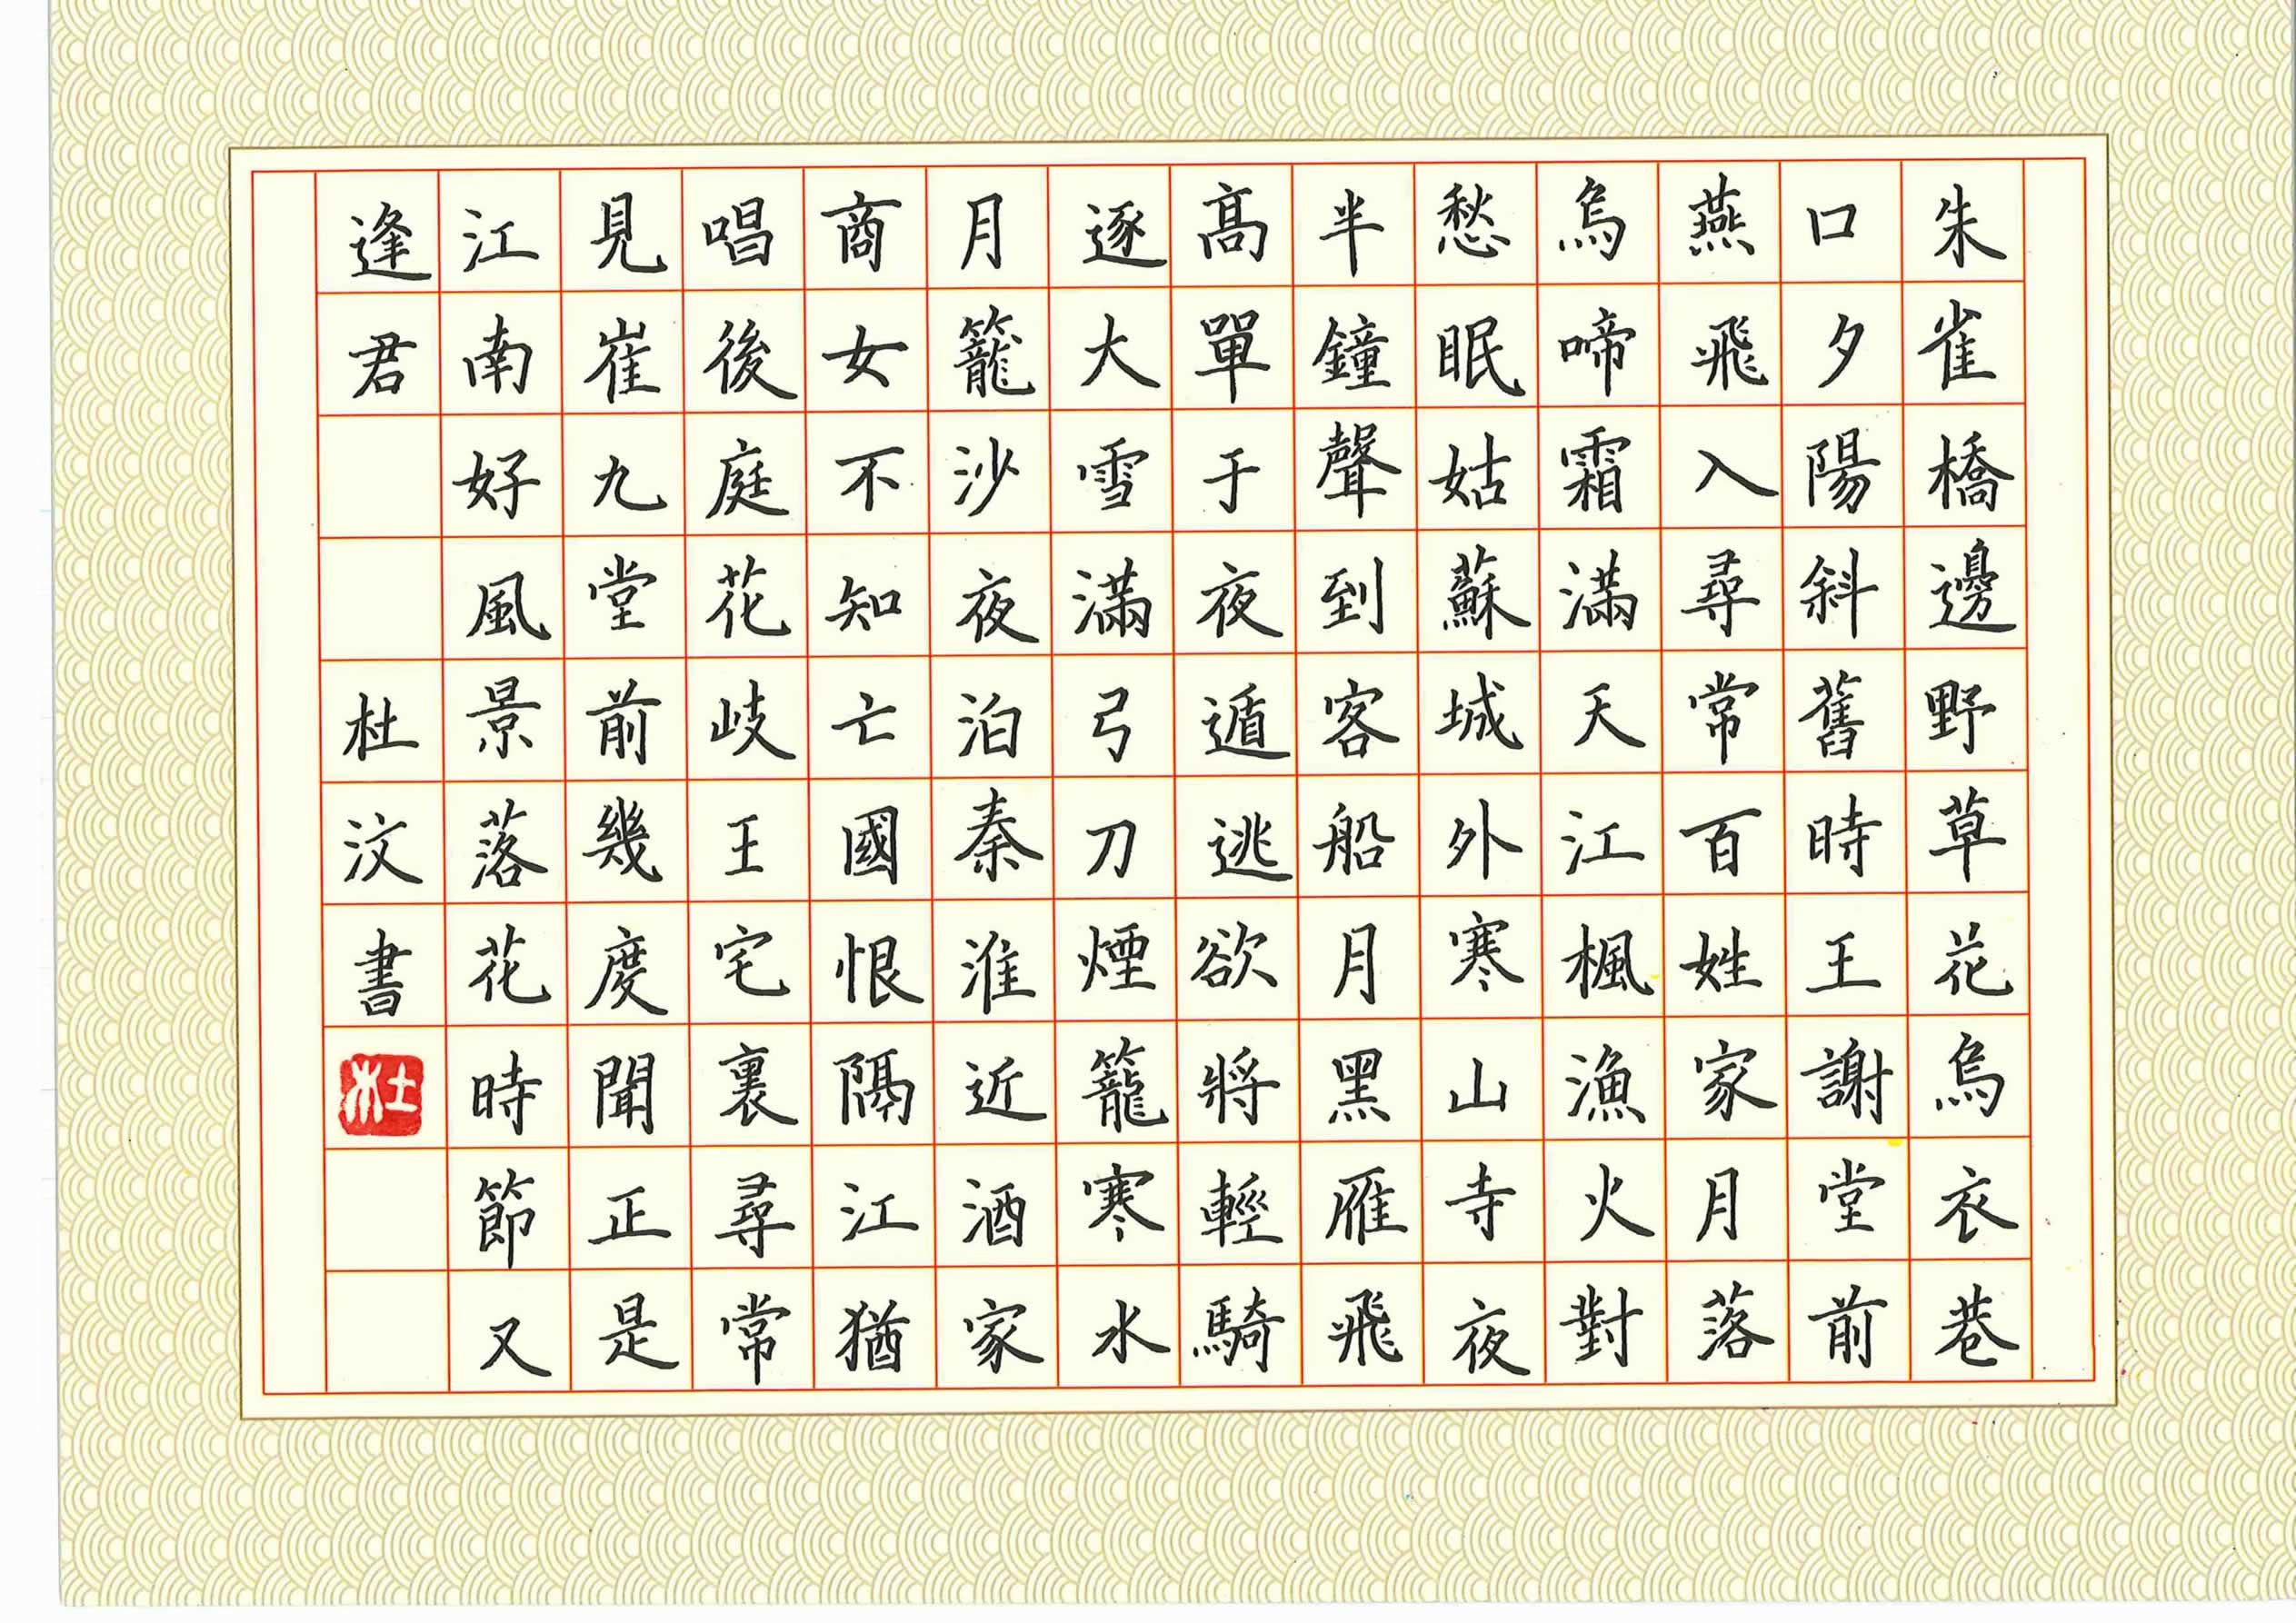 朱雀橋邊野草花烏衣巷
口夕陽斜舊時王謝堂前
燕飛入尋常百姓家月落
烏啼霜滿天江楓漁火對
愁眠姑蘇城外寒山寺夜
半鐘聲到客船月黑雁飛
高單于夜遁逃欲將輕騎
逐大雪滿弓刀煙籠寒水
月籠沙夜泊秦淮近酒家
商女不知亡國恨隔江猶
唱後庭花岐王宅裏尋常
見崔九堂前幾度聞正是
江南好風景落花時節又
逢君杜汶書
杜